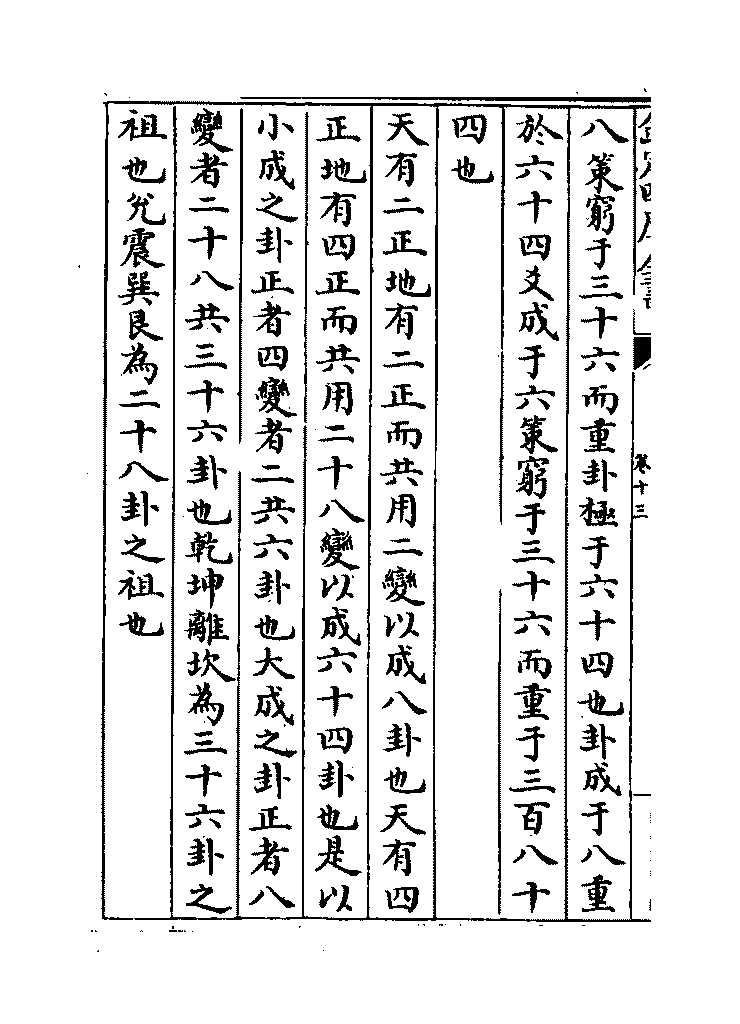 欽定四庫全書
卷十三
八策窮于三十六而重卦極于六十四也卦成于八重
於六十四爻成于六策窮于三十六而重于三百八十
四也
天有二正地有二正而共用二變以成八卦也天有四
正地有四正而共用二十八變以成六十四卦也是以
小成之卦正者四變者二共六卦也大成之卦正者八
變者二十八共三十六卦也乾坤離坎為三十六卦之
祖也兊震巽艮為二十八卦之祖也